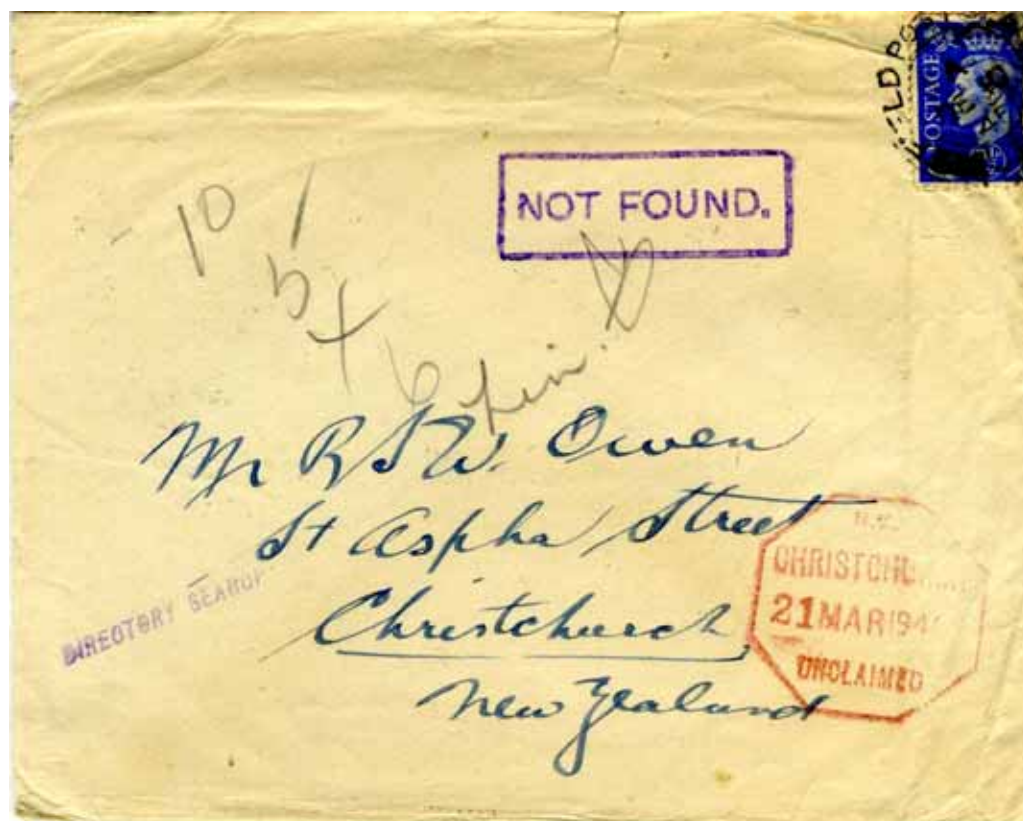 POSTAGE
NOT FOUND.
10 /
5
+
6
Mr R S W. Owen
St Aspha Street
Christchurch
New Zealand
DIRECTORY SEARCH
N.Z.
21 MAR 194
UNCLAIMED